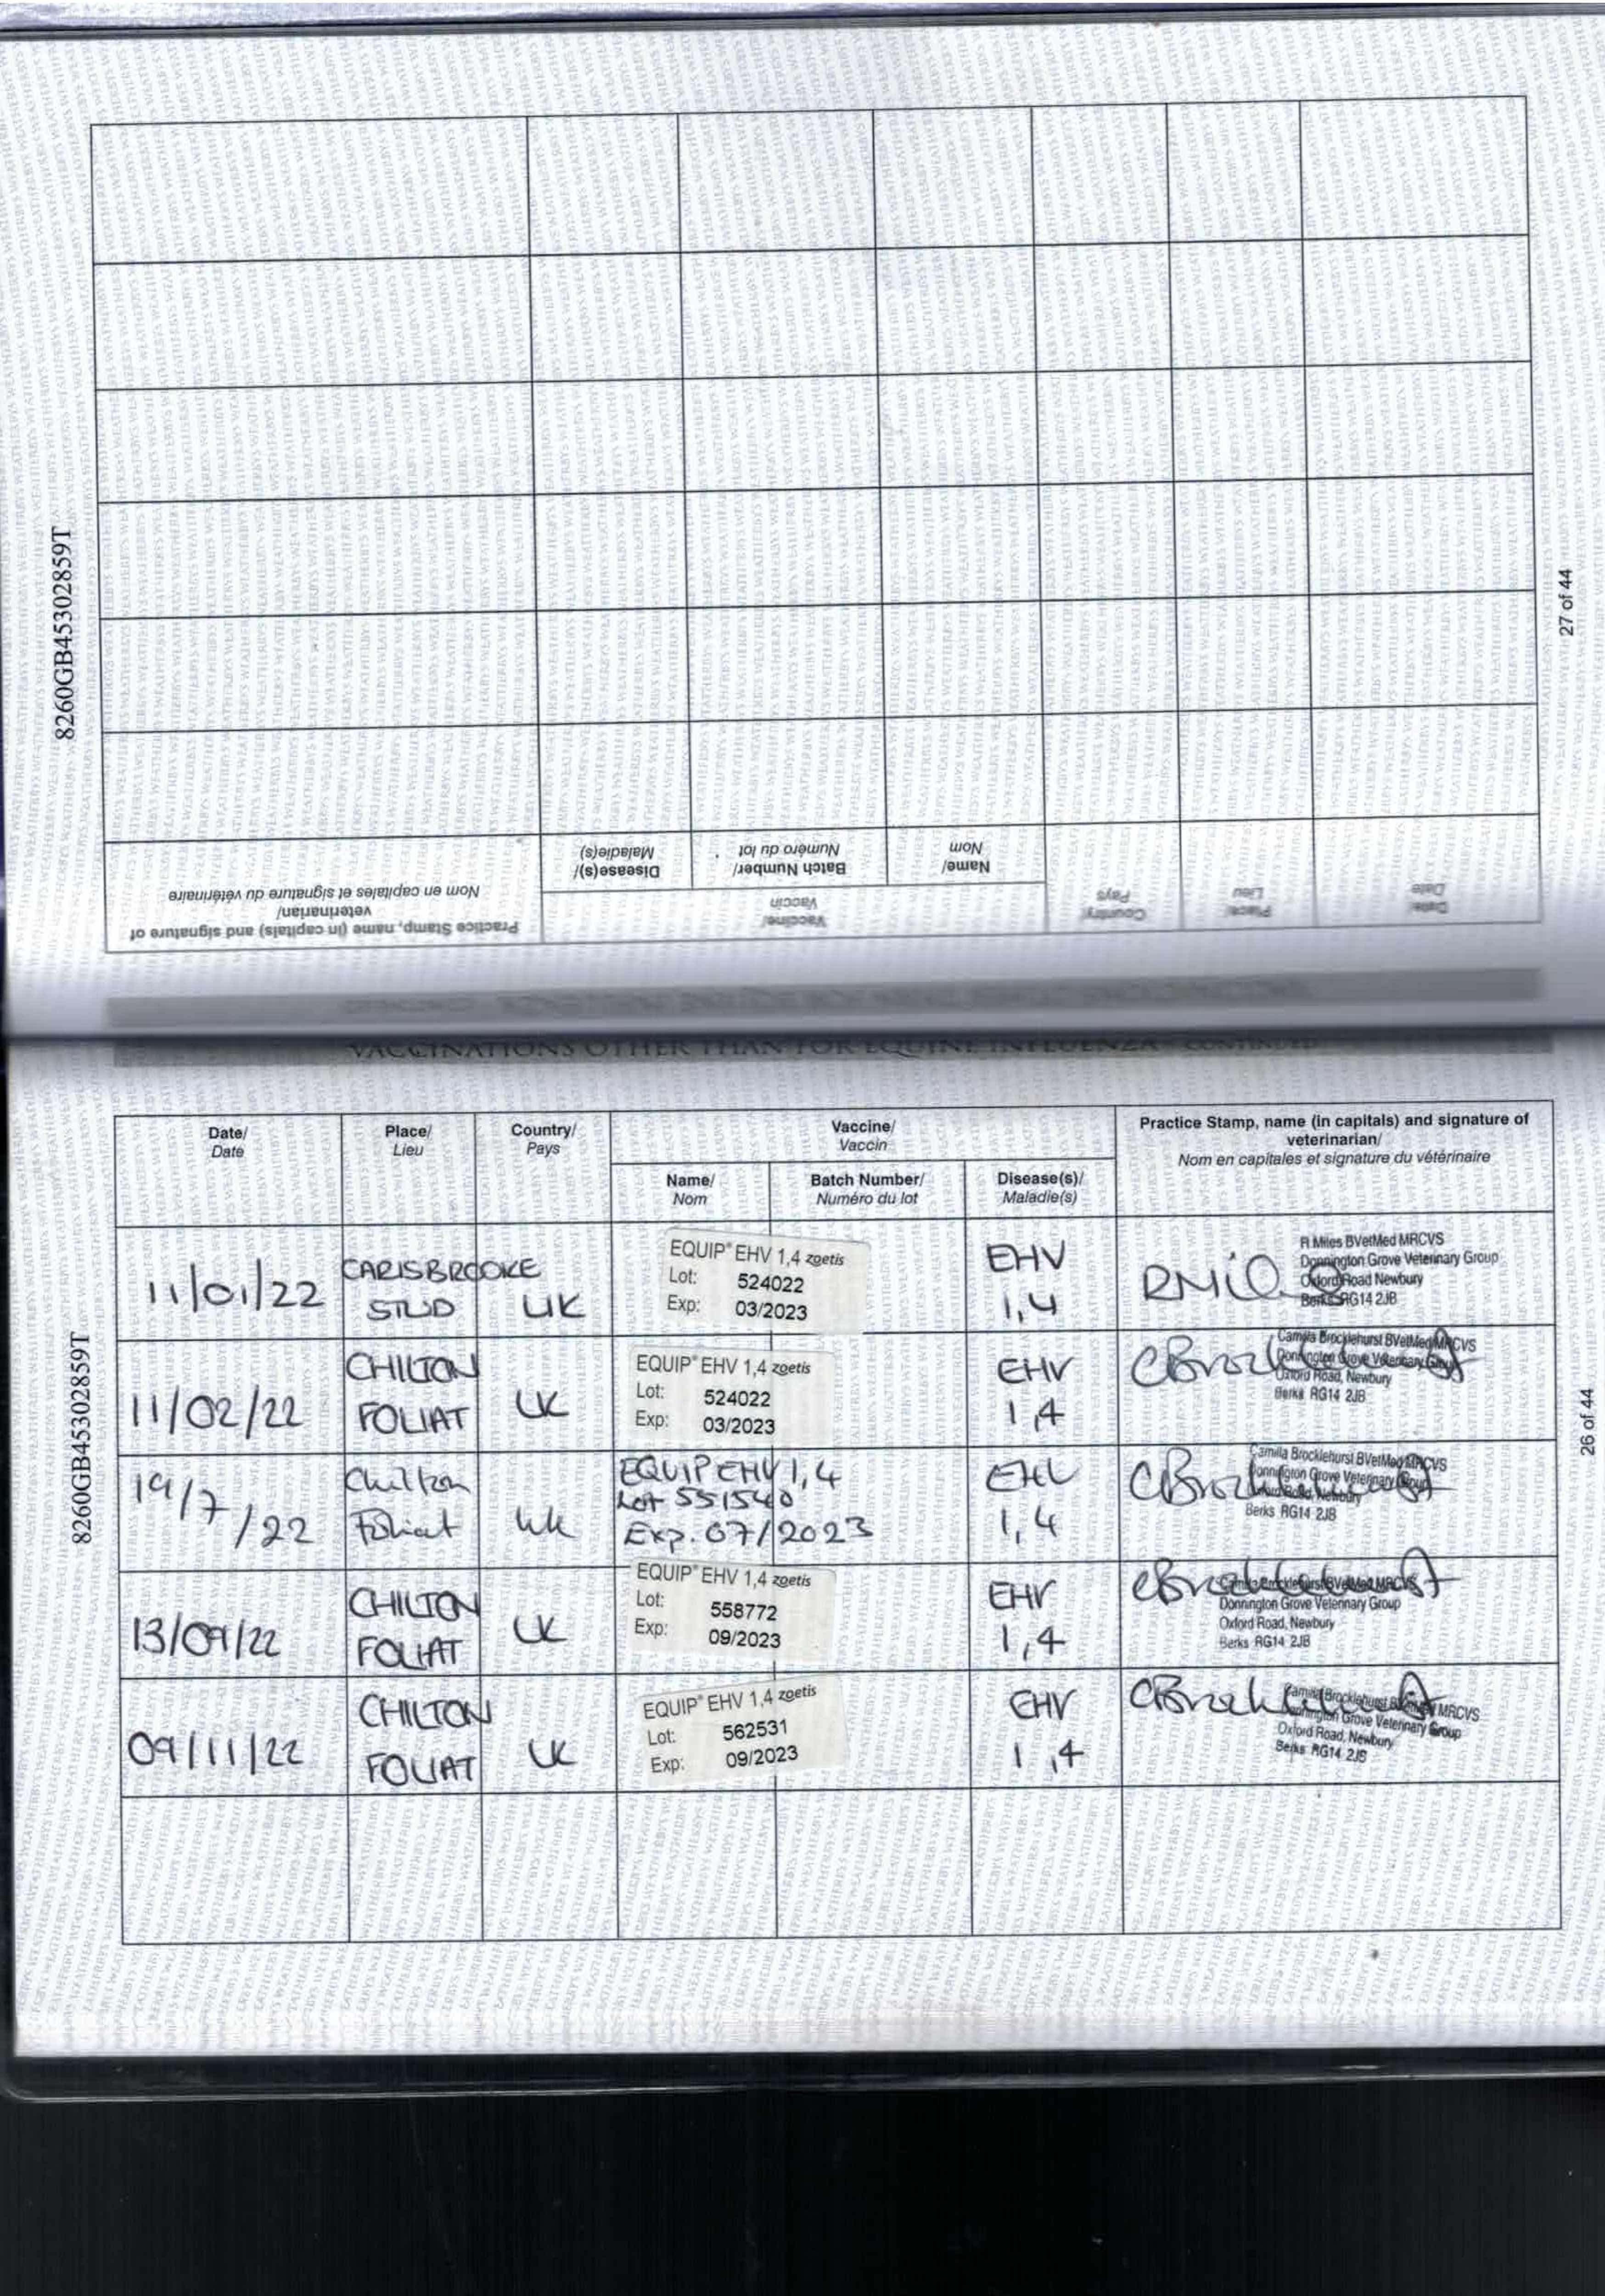 8260GB45302859T
27 of 44
Practice Stamp, name (in capitals) and signature of
veterinarian/
Nom en capitales et signature du vétérinaire
Vaccine/
Vaccin
Disease(s)/
Maladie(s)
Batch Number/
Numéro du lot
Name/
Nom
Country/
Pays
Place/
Lieu
Date/
Date
VACCINATIONS OTHER THAN FOR EQUINE INFLUENZA - CONTINUED
8260GB45302859T
26 of 44
Date/
Date
Place/
Lieu
Country/
Pays
Vaccine/
Vaccin
Name/
Nom
Batch Number/
Numéro du lot
Disease(s)/
Maladie(s)
Practice Stamp, name (in capitals) and signature of
veterinarian/
Nom en capitales et signature du vétérinaire
11/01/22
CARISBROOKE
STUD
UK
EQUIP® EHV 1,4 zoetis
Lot: 524022
Exp: 03/2023
EHV
1,4
RMiles
R Miles BVetMed MRCVS
Donnington Grove Veterinary Group
Oxford Road Newbury
Berks RG14 2JB
11/02/22
CHILTON
FOLIAT
UK
EQUIP® EHV 1,4 zoetis
Lot: 524022
Exp: 03/2023
EHV
1,4
CBrocklehurst
Camilla Brocklehurst BVetMed MRCVS
Donnington Grove Veterinary Group
Oxford Road, Newbury
Berks RG14 2JB
19/7/22
Chilton
Foliat
UK
EQUIP EHV 1,4
Lot 551540
Exp. 07/2023
EHV
1,4
CBrocklehurst
Camilla Brocklehurst BVetMed MRCVS
Donnington Grove Veterinary Group
Oxford Road, Newbury
Berks RG14 2JB
13/09/22
CHILTON
FOLIAT
UK
EQUIP® EHV 1,4 zoetis
Lot: 558772
Exp: 09/2023
EHV
1,4
CBrocklehurst
Camilla Brocklehurst BVetMed MRCVS
Donnington Grove Veterinary Group
Oxford Road, Newbury
Berks RG14 2JB
09/11/22
CHILTON
FOLIAT
UK
EQUIP® EHV 1,4 zoetis
Lot: 562531
Exp: 09/2023
EHV
1,4
CBrocklehurst
Camilla Brocklehurst BVetMed MRCVS
Donnington Grove Veterinary Group
Oxford Road, Newbury
Berks RG14 2JB